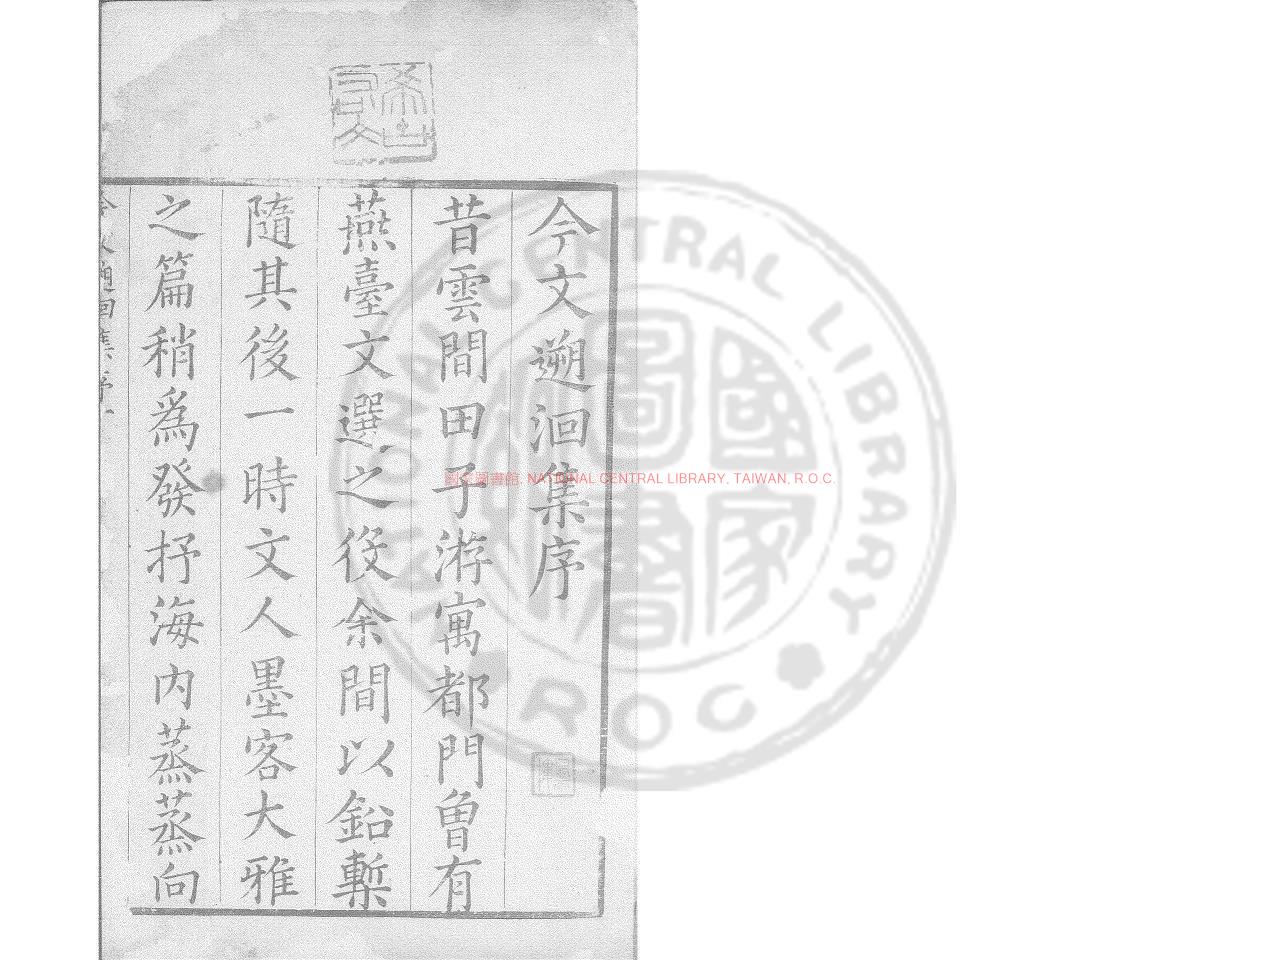 今文遡洄集序
昔雲間田子游寓都門曾有
燕臺文選之役余間以鉛槧
隨其後一時文人墨客大雅
之篇稍為發抒海內蒸蒸向
今文遡洄集 序 一
國家圖書館, NATIONAL CENTRAL LIBRARY, TAIWAN, R.O.C.
NATIONAL CENTRAL LIBRARY
R.O.C
國家圖書